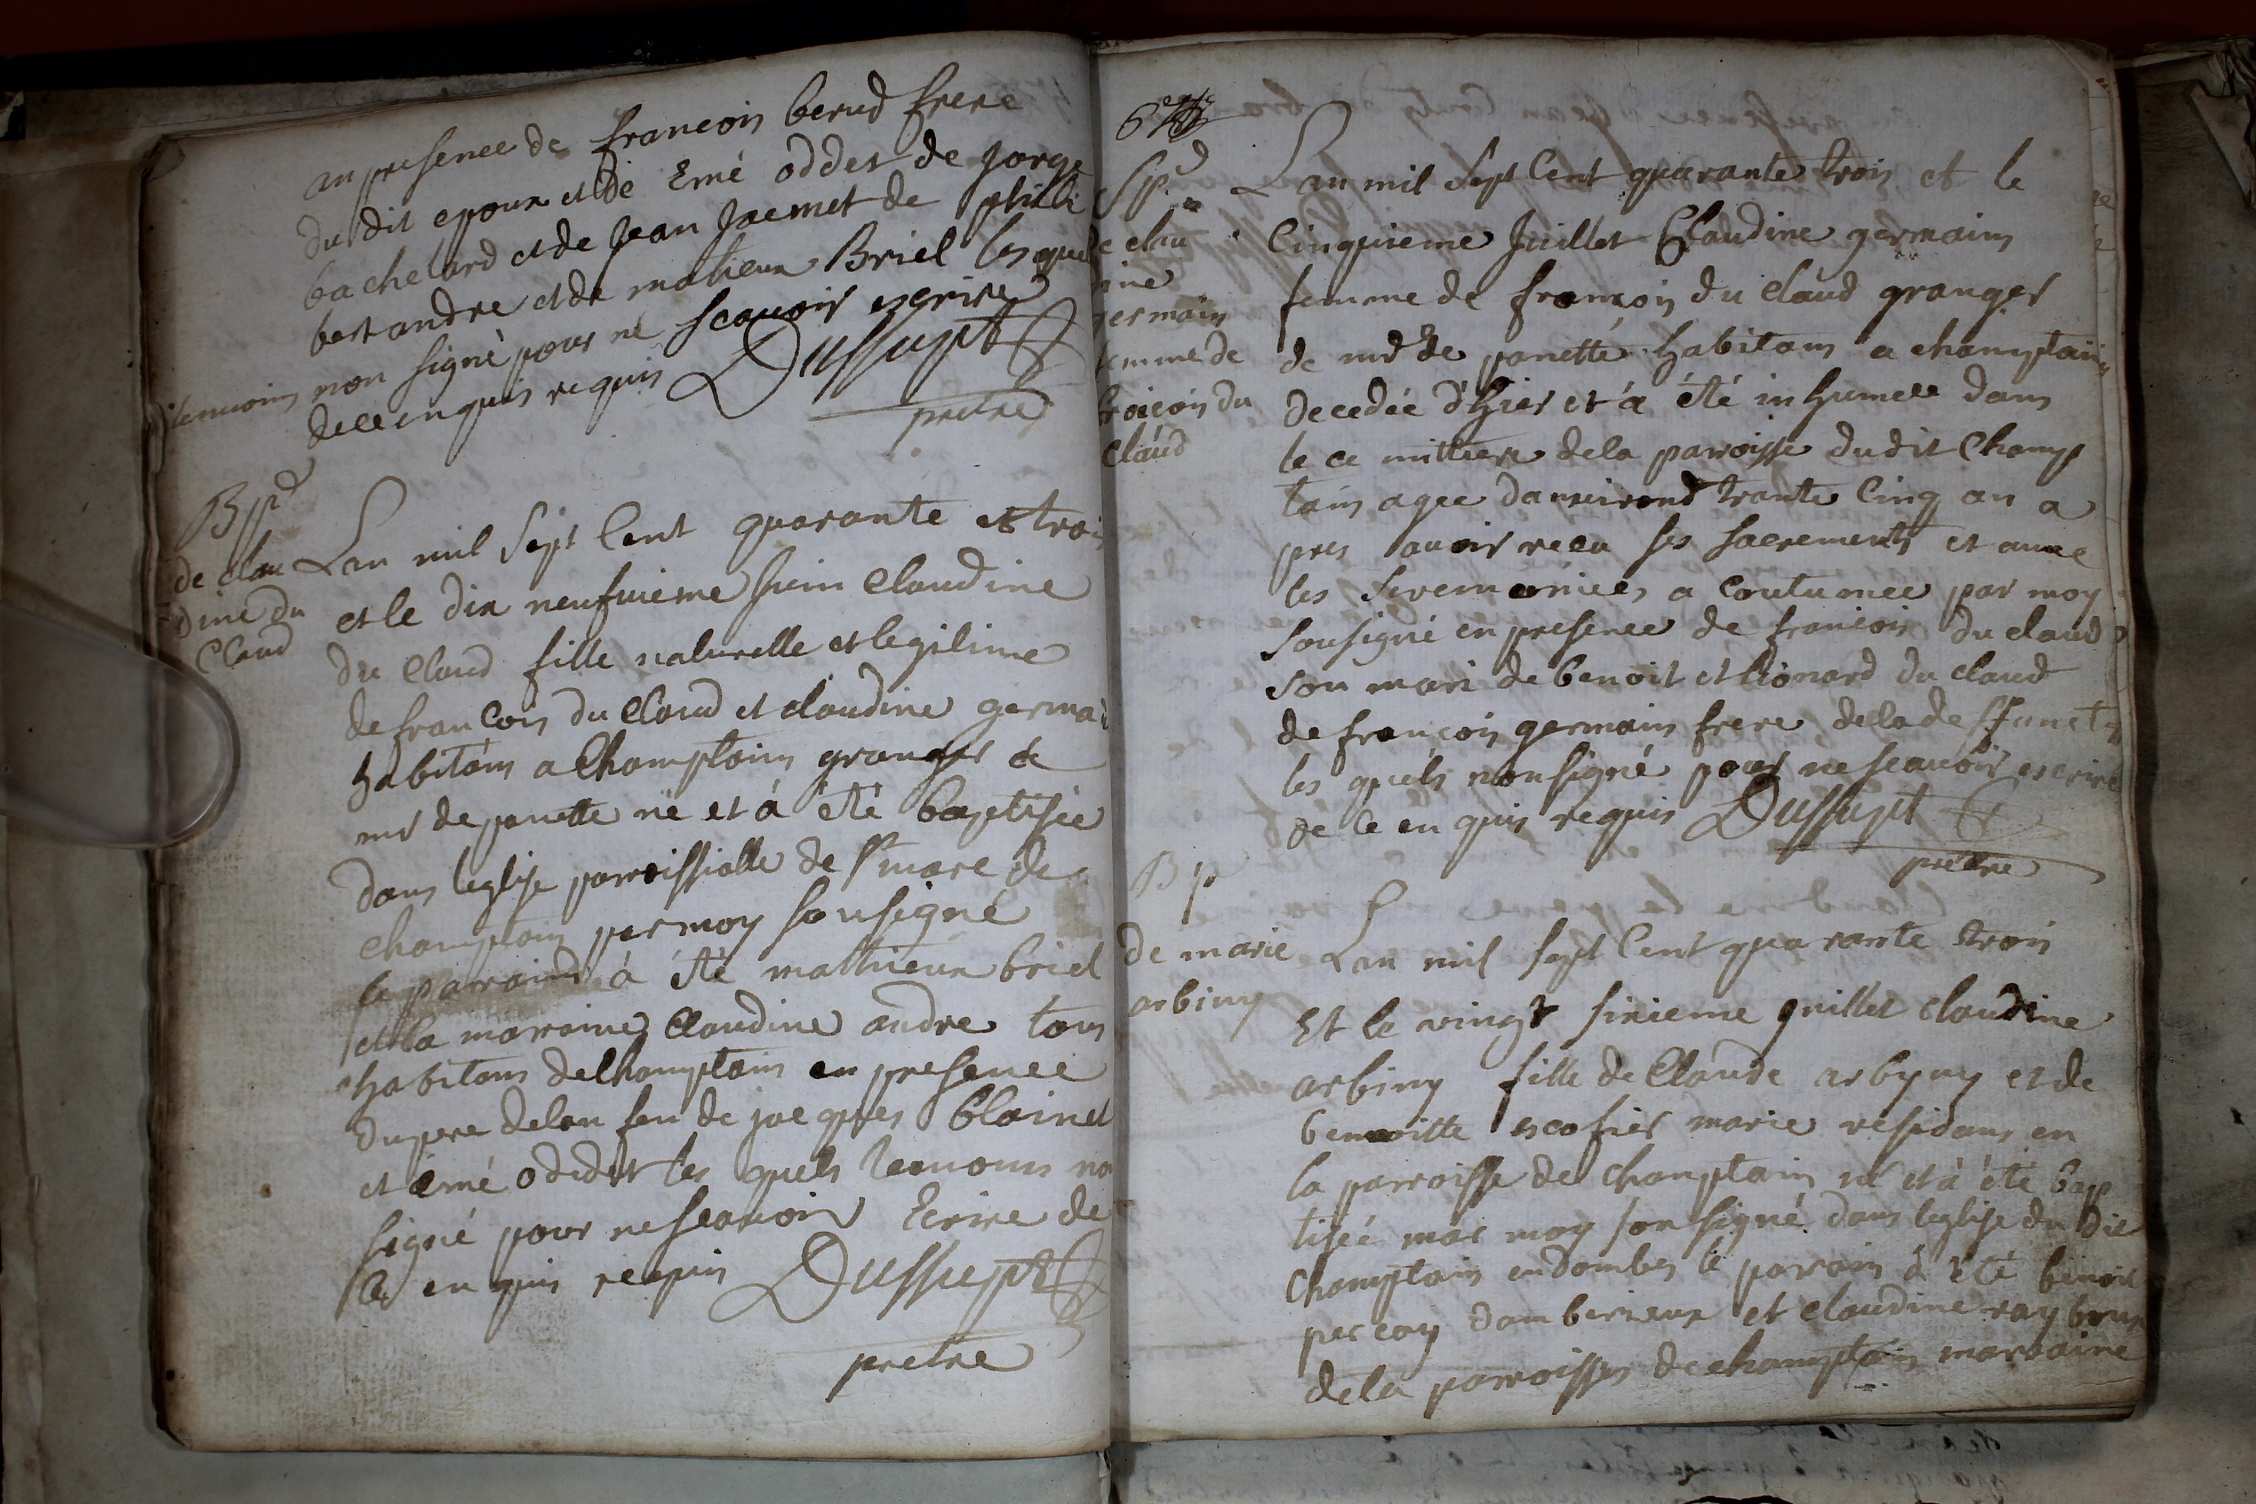 en presence de francois berud frere
du dit epoux et de Emé oddet de Jorge
bachelard et de Jean Jaemet de phili
bert andre et de matieux Briel les quels
temoins non signé pour ne scauoir escrire
de ce enquis requis Dussupt
pretre
Bp
de clau
dine du
Claud
Lan mil sept Cent quarante et trois
et le dix neufuieme Juin Claudine
du Claud fille naturelle et legitime
de francois du Claud et claudine germai
habitans a Champtein granger de
mr de ponette né et á été baptisée
dans leglise parroissialle de St marc de
champtein par moy sousigné
le parrain á été mathieux briel
et la maraine Claudine andre tous
habitans de Champtein en presence
du pere de lanfen de jacques Blainet
et emé odidet les quels temoins no
signé pour ne scauoir Ecrire de
ce en quis requis Dussupt
pretre
67
Sp
de clau
dine
germain
femme de
froicois du
claud
Lan mil sept Cent quarante trois et le
Cinquieme Juillet Claudine germain
femme de francois du claud granger
de mr de ponette habitans a champtein
decedée d'hier et á été inhumee dans
le ce mittiere de la parroisse du dit Champ
tein agee danuirond trante Cinq an a
pres auoir recu ses sacrements et auec
les seremonies a coutumee par moy
sousigné en presence de francois du claud
son mari de benoit et lionard du claud
de francois germain frere de la deffuncte
les quels nonsigné pour ne scauoir escrire
de ce en quis requis Dussupt
pretre
Bp
de marie
arbiny
Lan mil sept Cent quarante trois
Et le vingt sixieme Juillet claudine
arbiny fille de Claude arbyny et de
benoitte escofier marie residans en
la parroisse de champtein né et á été bap
tisée par moy sousigné dans leglise du dit
Champtein en dombes le parain á été benoit
percoy dambericux et claudine ray
de la parroisse de champtein marraine